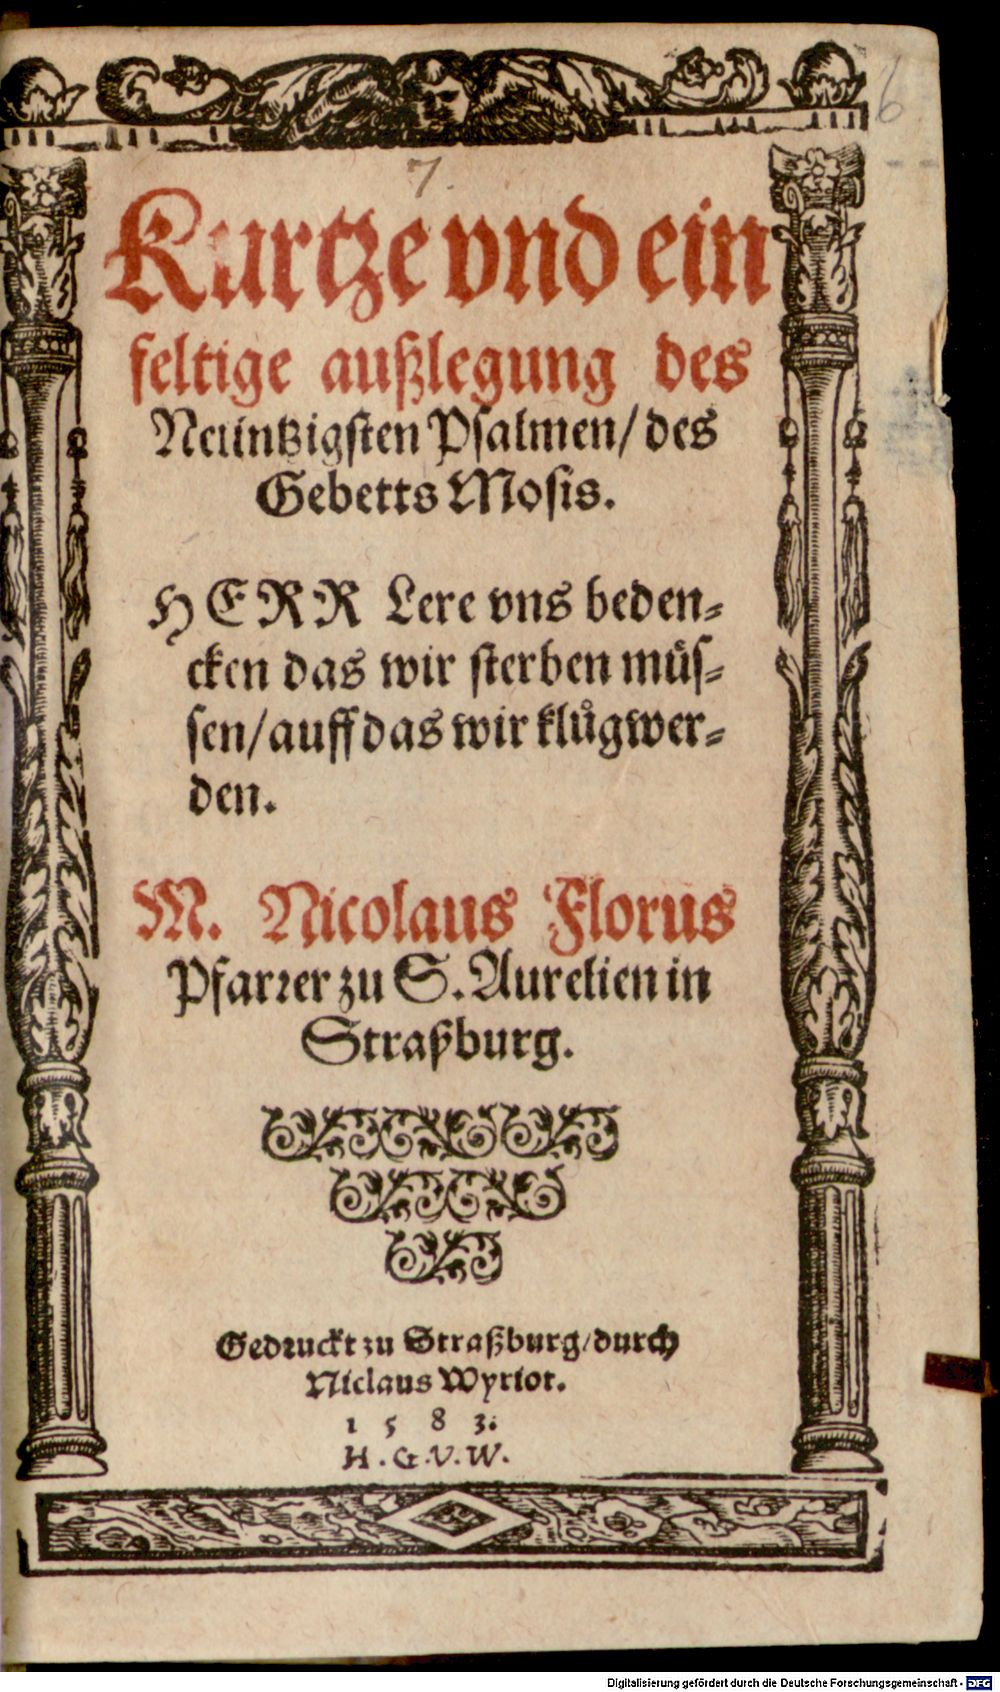 6
7.
Kurtze vnd ein
feltige außlegung des
Neüntzigsten Psalmen/ des
Gebetts Mosis.
HERR Lere vns beden⸗
cken das wir sterben müs⸗
sen/ auff das wir klůg wer⸗
den.
M. Nicolaus Florus
Pfarrer zu S. Aurelien in
Straßburg.
Gedruckt zu Straßburg/ durch
Niclaus Wyriot.
1 5 8 3.
H. G. V. W.
Digitalisierung gefördert durch die Deutsche Forschungsgemeinschaft - DFG